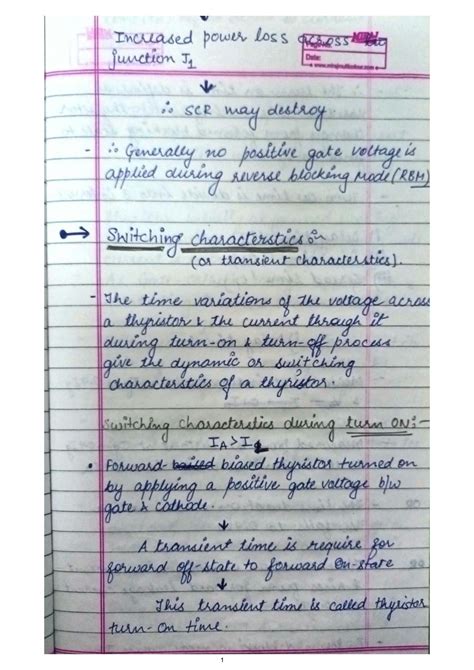 Increased power loss across
junction J1
Date:
↓
∴ SCR may destroy
- ∴ Generally no positive gate voltage is
applied during reverse blocking mode (RBM)
Switching characterstics :-
(or transient characterstics).
- The time variations of the voltage across
a thyristor & the current through it
during turn-on & turn-off process
give the dynamic or switching
characterstics of a thyristor.
Switching characterstics during turn ON:-
IA > I
• Forward- baised biased thyristor turned on
by applying a positive gate voltage b/w
gate & cathode.
↓
A transient time is require for
forward off-state to forward On-state
↓
This transient time is called thyristor
turn-on time.
1